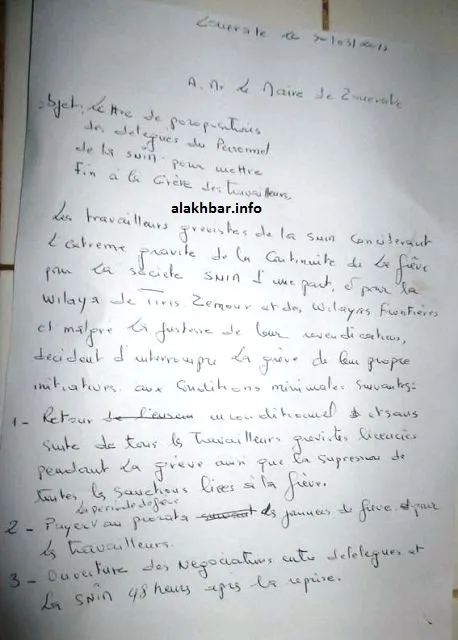 Zouerate le 30/03/2015
A. Mr le Maire de Zouerate
Objet: Lettre de propositions
des délégués du Personnel
de la snim pour mettre
Fin à la Grève des travailleurs
alakhbar.info
Les travailleurs grevistes de la snim considerant
l'extreme gravite de la Continuite de la grêve
pour la societe SNIM d'une part, et pour la
Wilaya de Tiris Zemour et des Wilayas Frontières
et malgre la justesse de leur revendications,
decident d'interrompre la grève de leur propre
initiatives aux Conditions minimales suivantes:
1 - Retour inconditionnel et sans
suite de tous les travailleurs grevistes licenciés
pendant la grève ainsi que la supression de
toutes les sanctions liées à la grève.
la periode de greve
2 - Payer au prorata des journées de grève pour
les travailleurs.
3 - Ouverture des Negociations entre delelegues et
la SNIM 48 heurs après la reprise.